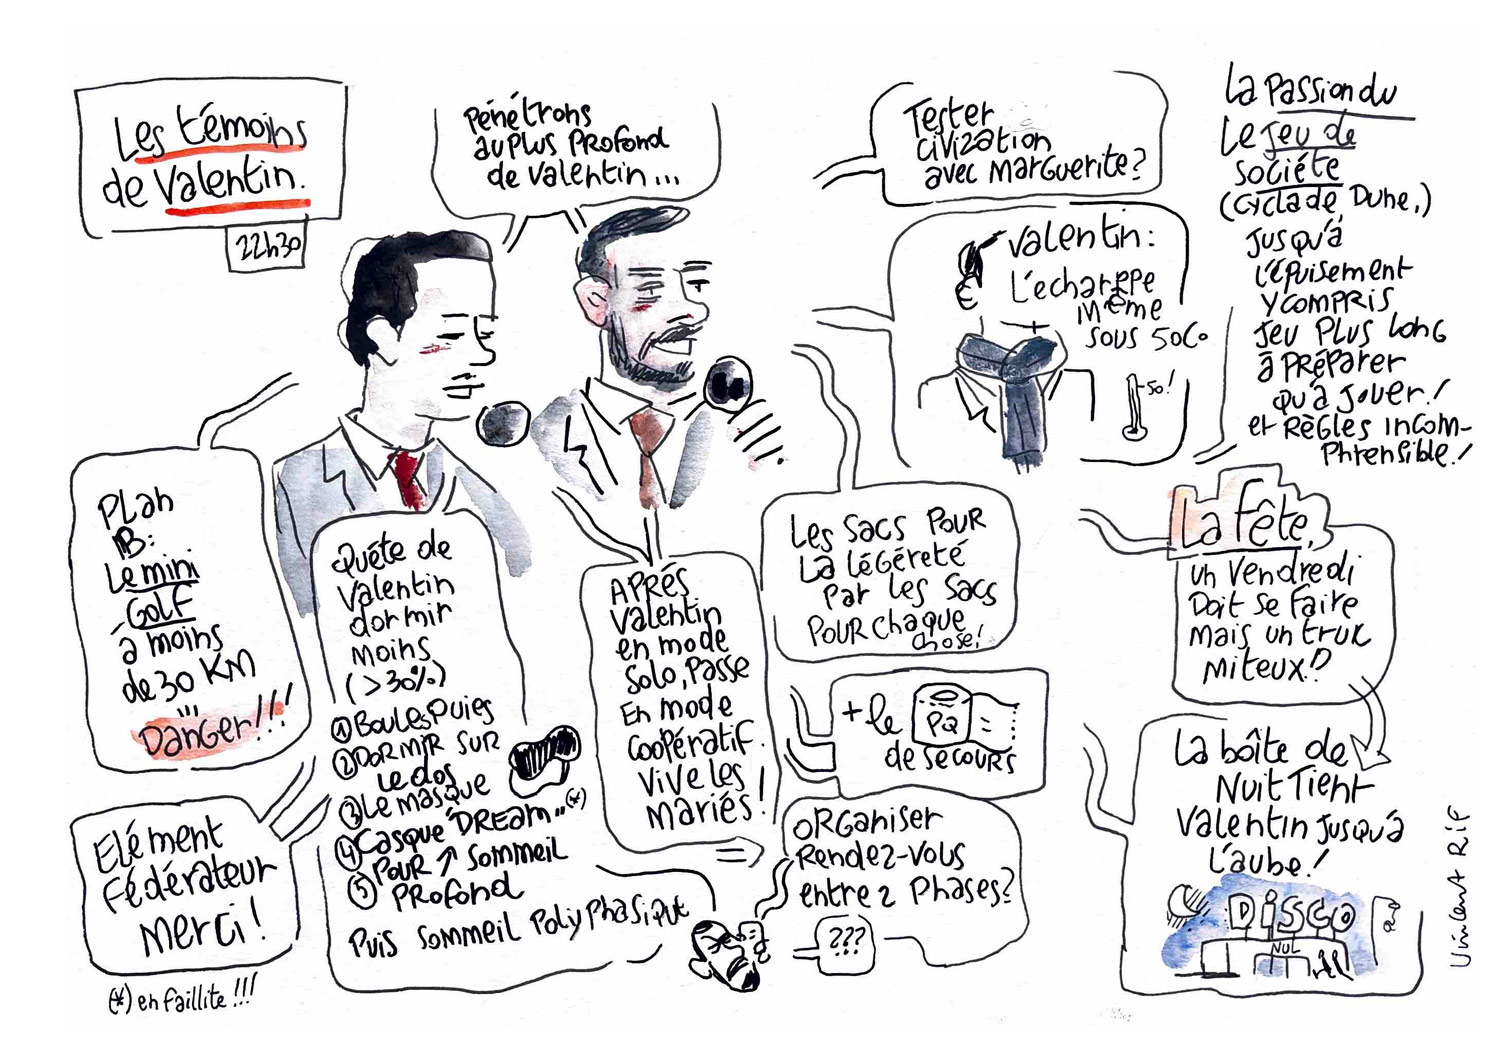 Les témoins
de Valentin.
22h30
Pénétrons
au plus profond
de Valentin...
Tester
civization
avec Marguerite?
La Passion du
Le jeu de
société
(Cyclade, Dune,)
jusqu'à
l'épuisement
y compris
jeu plus long
à préparer
qu'à jouer!
et règles incom-
phrensible!
Valentin:
L'écharppe
même
sous 50C°
-50!
Plan
B:
Le mini
Golf
à moins
de 30 KM
!!!
Danger!!!
Quéte de
Valentin
dormir
moins
(>30%)
① Boules Puies
② Dormir sur
le dos
③ Le masque
④ Casque "Dream" (*)
Pour ↗ sommeil
⑤ Profond
Puis sommeil polyphasique
Aprés
Valentin
en mode
solo, Passe
En mode
coopératif.
Vive les
mariés!
Les sacs pour
la légéreté
Par les sacs
pour chaque
chose!
+ le PQ
de secours
Organiser
Rendez-vous
entre 2 Phases?
???
La fête,
un vendredi
Doit se faire
mais un truk
miteux!?
La boîte de
Nuit Tient
Valentin jusqu'à
l'aube!
DISCO
NUL
Elément
fédérateur
merci!
(*) en faillite!!!
Vincent Rif